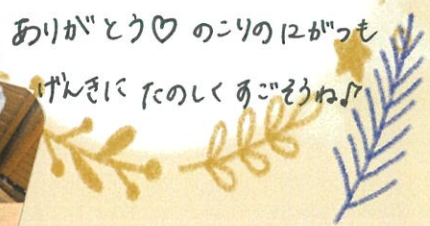 ありがとう♡ のこりの12がつも
げんきに たのしく すごそうね♪